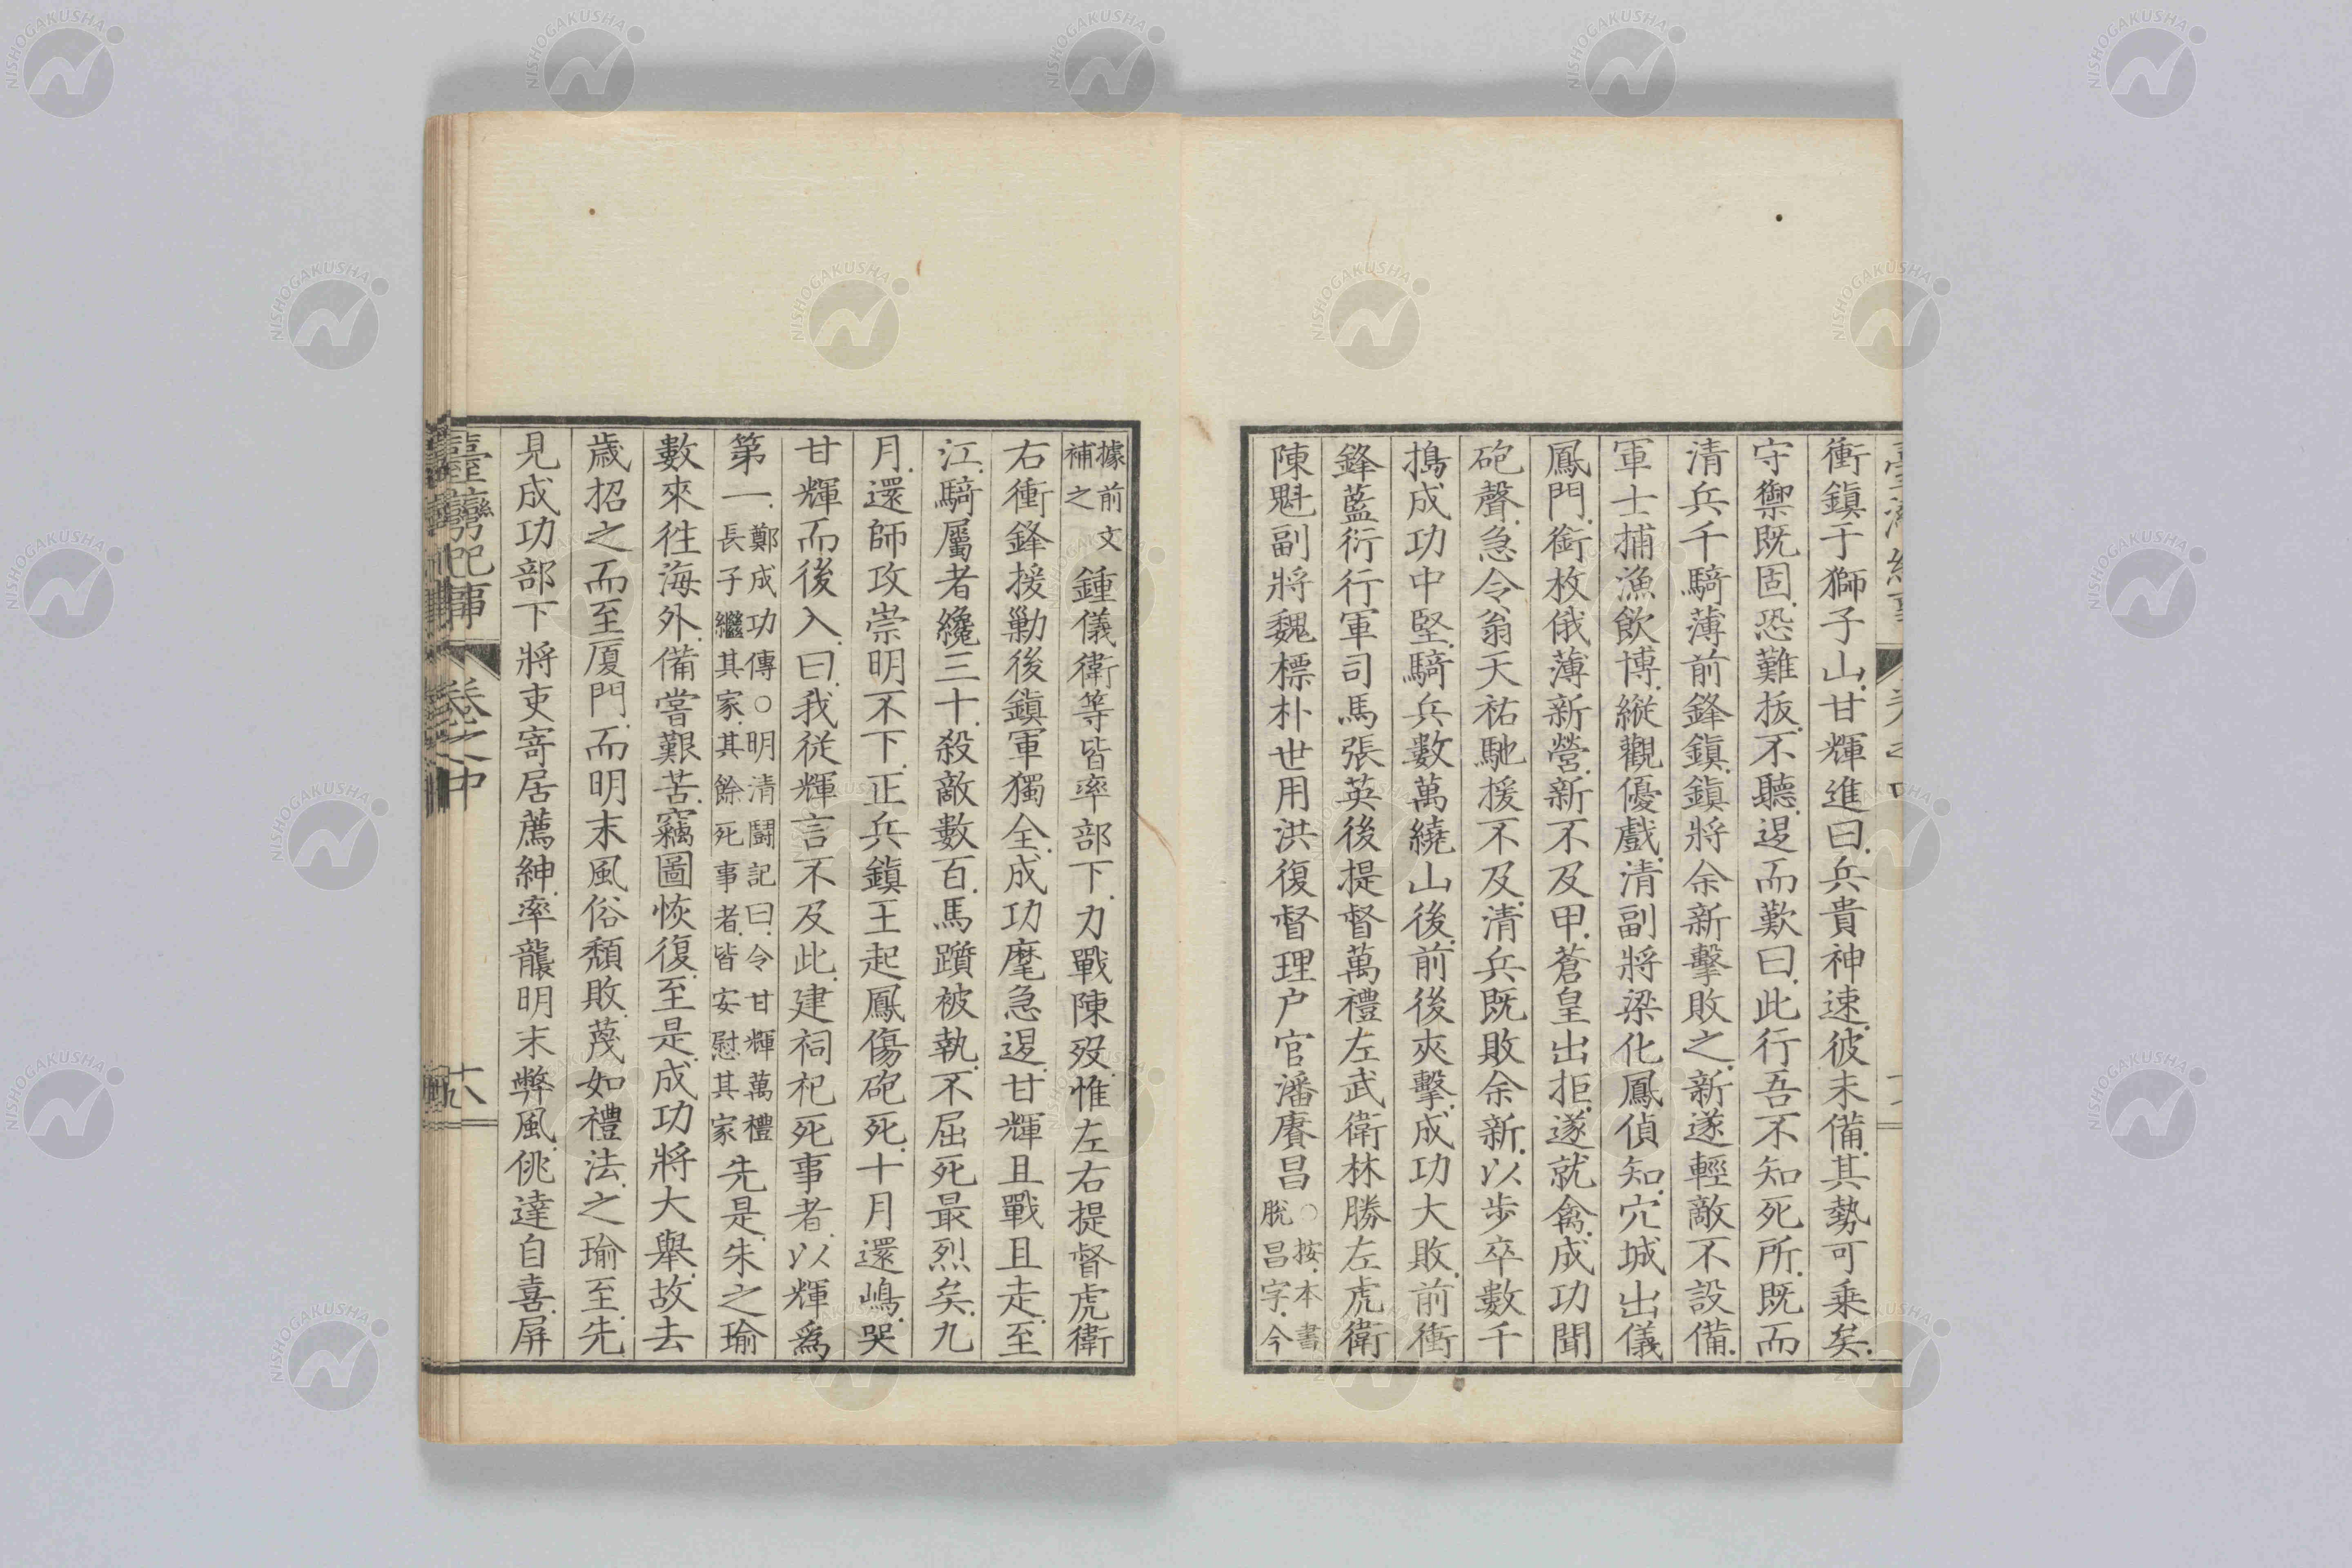 衝鎮于獅子山.甘輝進曰.兵貴神速.彼未備.其勢可乗矣.
守禦既固.恐難扳.不聽.退而歎曰.此行吾不知死所.既而
清兵千騎薄前鋒鎮.鎮將余新擊敗之.新遂輕敵不設備.
軍士捕漁飲博.縱觀優戲.清副將梁化鳳偵知.穴城出儀
鳳門.銜枚俄薄新營.新不及甲.蒼皇出拒.遂就禽.成功聞
砲聲.急令翁天祐馳援不及.清兵既敗余新.以歩卒數千
搗成功中堅.騎兵數萬繞山後.前後夾擊.成功大敗.前衝
鋒藍衍行軍司馬張英後提督萬禮左武衛林勝左虎衛
陳魁副將魏標朴世用洪復督理户官潘賡昌○按.本書脱昌字.今
據前文補之鍾儀衛等皆率部下.力戰陳歿.惟左右提督虎衛
右衝鋒援勦後鎮軍獨全.成功麾急退.甘輝且戰且走.至
江.騎屬者纔三十.殺敵數百.馬躓被執.不屈死最烈矣.九
月.還師攻崇明不下.正兵鎮王起鳳傷砲死.十月還嶋.哭
甘輝而後入.曰.我従輝言不及此.建祠祀死事者.以輝爲
第一.鄭成功傳○明清鬪記曰.令甘輝萬禮長子繼其家.其餘死事者.皆安慰其家先是.朱之瑜
數來往海外.備嘗艱苦.竊圖恢復.至是.成功將大舉.故去
歳招之而至厦門.而明末風俗頽敗.蔑如禮法.之瑜至.先
見成功部下將吏寄居薦紳.率襲明末弊風.佻達自喜.屏
臺灣紀事 卷之中 十八